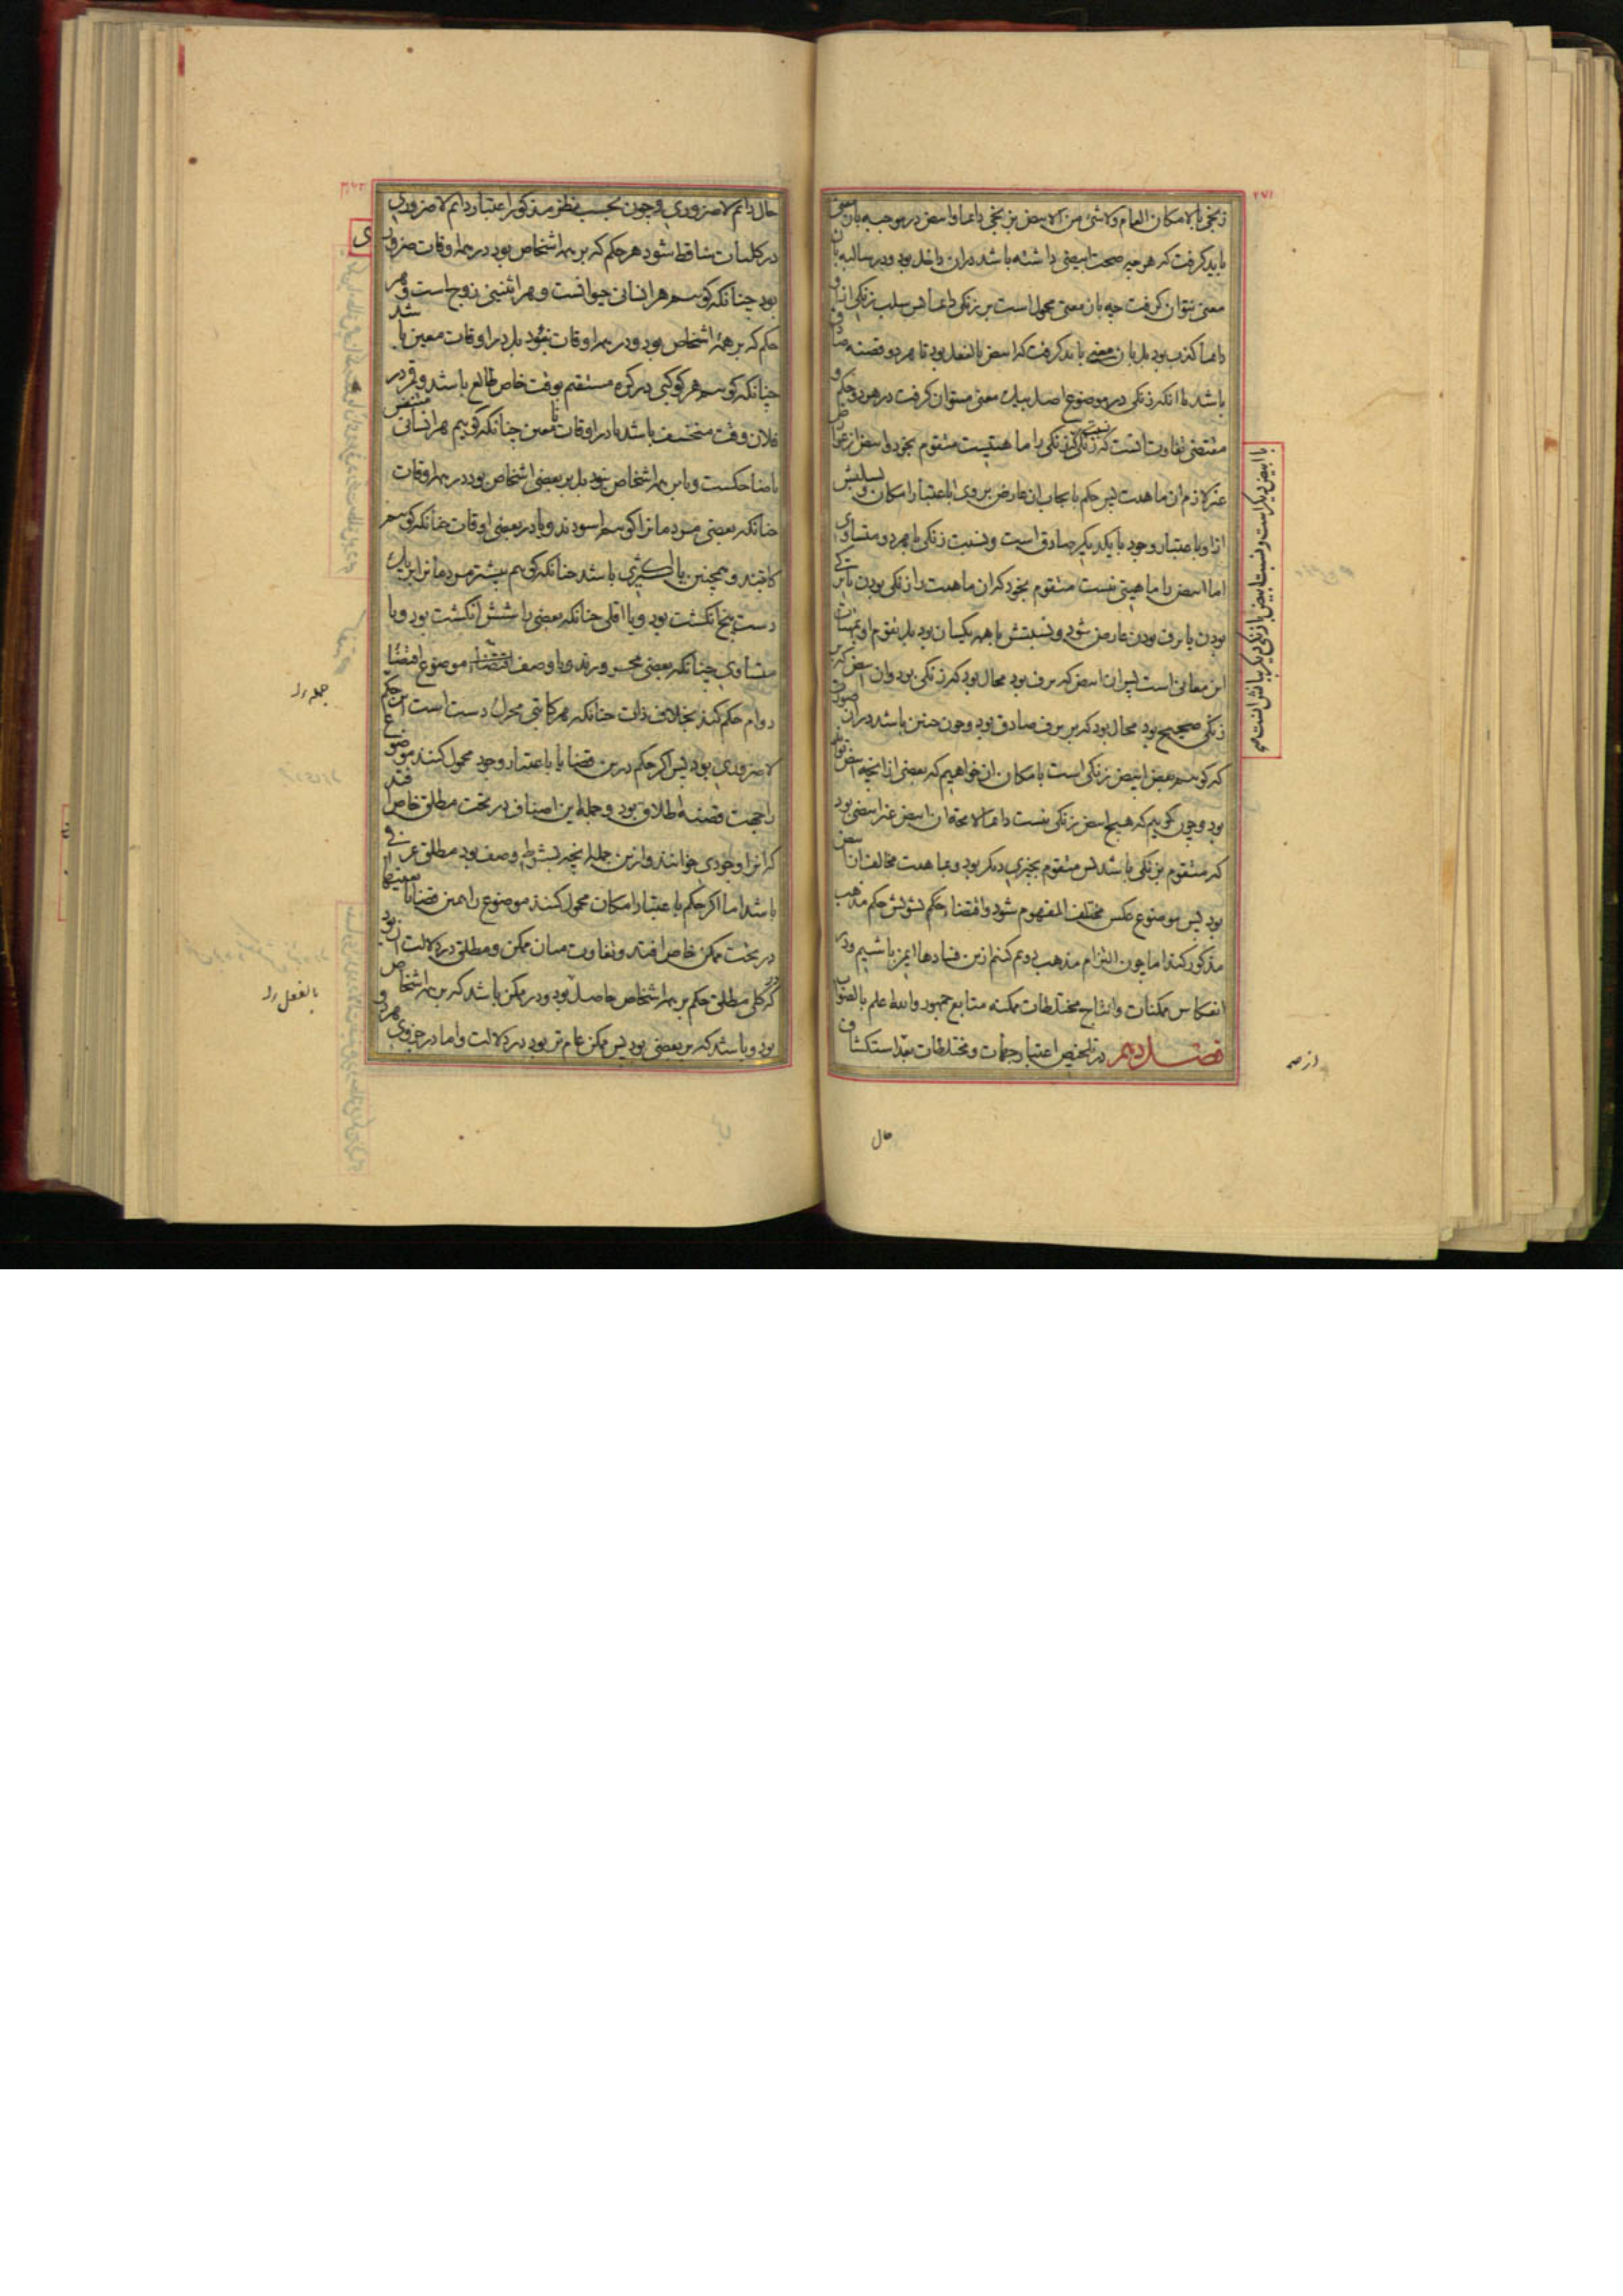 زنجی بالامکان العام ولاشئ من الابیض بزنجی دائما وابیض در موجبه بان معنی
باید گرفت که هرچه صحت ابیضی داشته باشد در ان داخل بود و در سالبه بان
معنی نتوان گرفت چه بان معنی محمول است بر زنکی دائما پس سلب زنکی از او
دائما کذب بود بل بان معنی باید گرفت که ابیض بالفعل بود تا هر دو قضیه صادق
باشد با انکه زنکی در موضوع اصل بیک معنی میتوان گرفت در هر دو حکم و
مقتضی تفاوت انست که زنکی زنکی را ماهیتیست متقوم بخود و ابیض از عوارض
غیر لازم ان ماهیت پس حکم بایجاب ان عارض بر وی باعتبار امکان و سلبش
ازو باعتبار وجود با یکدیگر صادق است و نسبت زنکی با هر دو متساوی
اما ابیض را ماهیتی نیست متقوم بخود که ان ماهیت را زنکی بودن یا ترکی
بودن یا برف بودن عارض شود و نسبتش با همه یکسان بود بل تقوم او بماهیات
این معانی است پس ان ابیض که برف بود محال بود که زنکی بود وان ابیض که بر
زنکی صحیح بود محال بود که بر برف صادق بود وچون چنین باشد در ان صورت
که کوییم بعض ابیض زنکی است بامکان ان خواهیم که بعضی از انچه ابیض تواند
بود و چون گوییم که هیچ ابیض زنکی نیست دائما لا محاله ان ابیض غیر ابیضی بود
که متقوم بزنکی باشد پس متقوم بچیزی دیگر بود و بماهیت مخالف ان ابیض
بود پس موضوع عکس مختلف المفهوم شود و اقتضاء حکم تشویش حکم مذهب
مذکور کند اما چون التزام مذهب دویم کنیم ازین فسادها ایمن باشیم ودر
انعکاس ممکنات و انتاج مختلطات ممکنه متابع جمهور والله اعلم بالصواب
فصل دهم در تلخیص اعتبار جهات و مختلطات بعد استکشاف
با ابیض دیگر است و نسبت ابیض با زنکی دیگر بیانش انست که
حال
حال دائم لاضروری وچون بحسب نظر مذکور اعتبار دائم لاضروری
در کلیات ساقط شود هر حکم که بر همه اشخاص بود در همه اوقات ضروری
بود چنانکه کوییم هر انسانی حیوانست و هر اثنینی زوج است و هر
حکم که بر همه اشخاص بود و در همه اوقات نبود بل در اوقات معین باشد
چنانکه کوییم هر کوکبی در کره مستقیم بوقت خاص طالع باشد و قمر در
فلان وقت منخسف باشد یا در اوقات نامعین چنانکه کوییم هر انسانی متنفس
یا ضاحکست ویا بر همه اشخاص نبود بل بر بعضی اشخاص بود در همه اوقات
چنانکه بعضی مردمان را کوییم اسودند ویا در بعضی اوقات چنانکه کوییم
کاتبند و همچنین یا اکثری باشد چنانکه کوییم بیشتر مردمان را بر یک
دست پنج انکشت بود ویا اقلی چنانکه بعضی را شش انکشت بود ویا
متساوی چنانکه بعضی محرورند ویا وصف موضوع اقتضاء
دوام حکم کند بخلاف ذات چنانکه هر کاتبی محرک دست است این حکم
لاضروری بود پس اکر حکم درین قضایا باعتبار وجود محمول کنند موضوع
را جهت قضیه اطلاق بود و جمله این اصناف در تحت مطلق خاص افتد
که انرا وجودی خوانند و ازین جمله انچه بشرط وصف بود مطلق عرفی
باشد اما اکر حکم باعتبار امکان محمول کنند موضوع را همین قضایا بعینها
در تحت ممکن خاص افتد و تفاوت میان ممکن و مطلق در دلالت ان بود
که کلی مطلق حکم بر همه اشخاص حاصل بود و در ممکن باشد که بر همه اشخاص
بود و باشد که بر بعضی بود پس ممکن عام تر بود در دلالت واما در جزوی هر دو